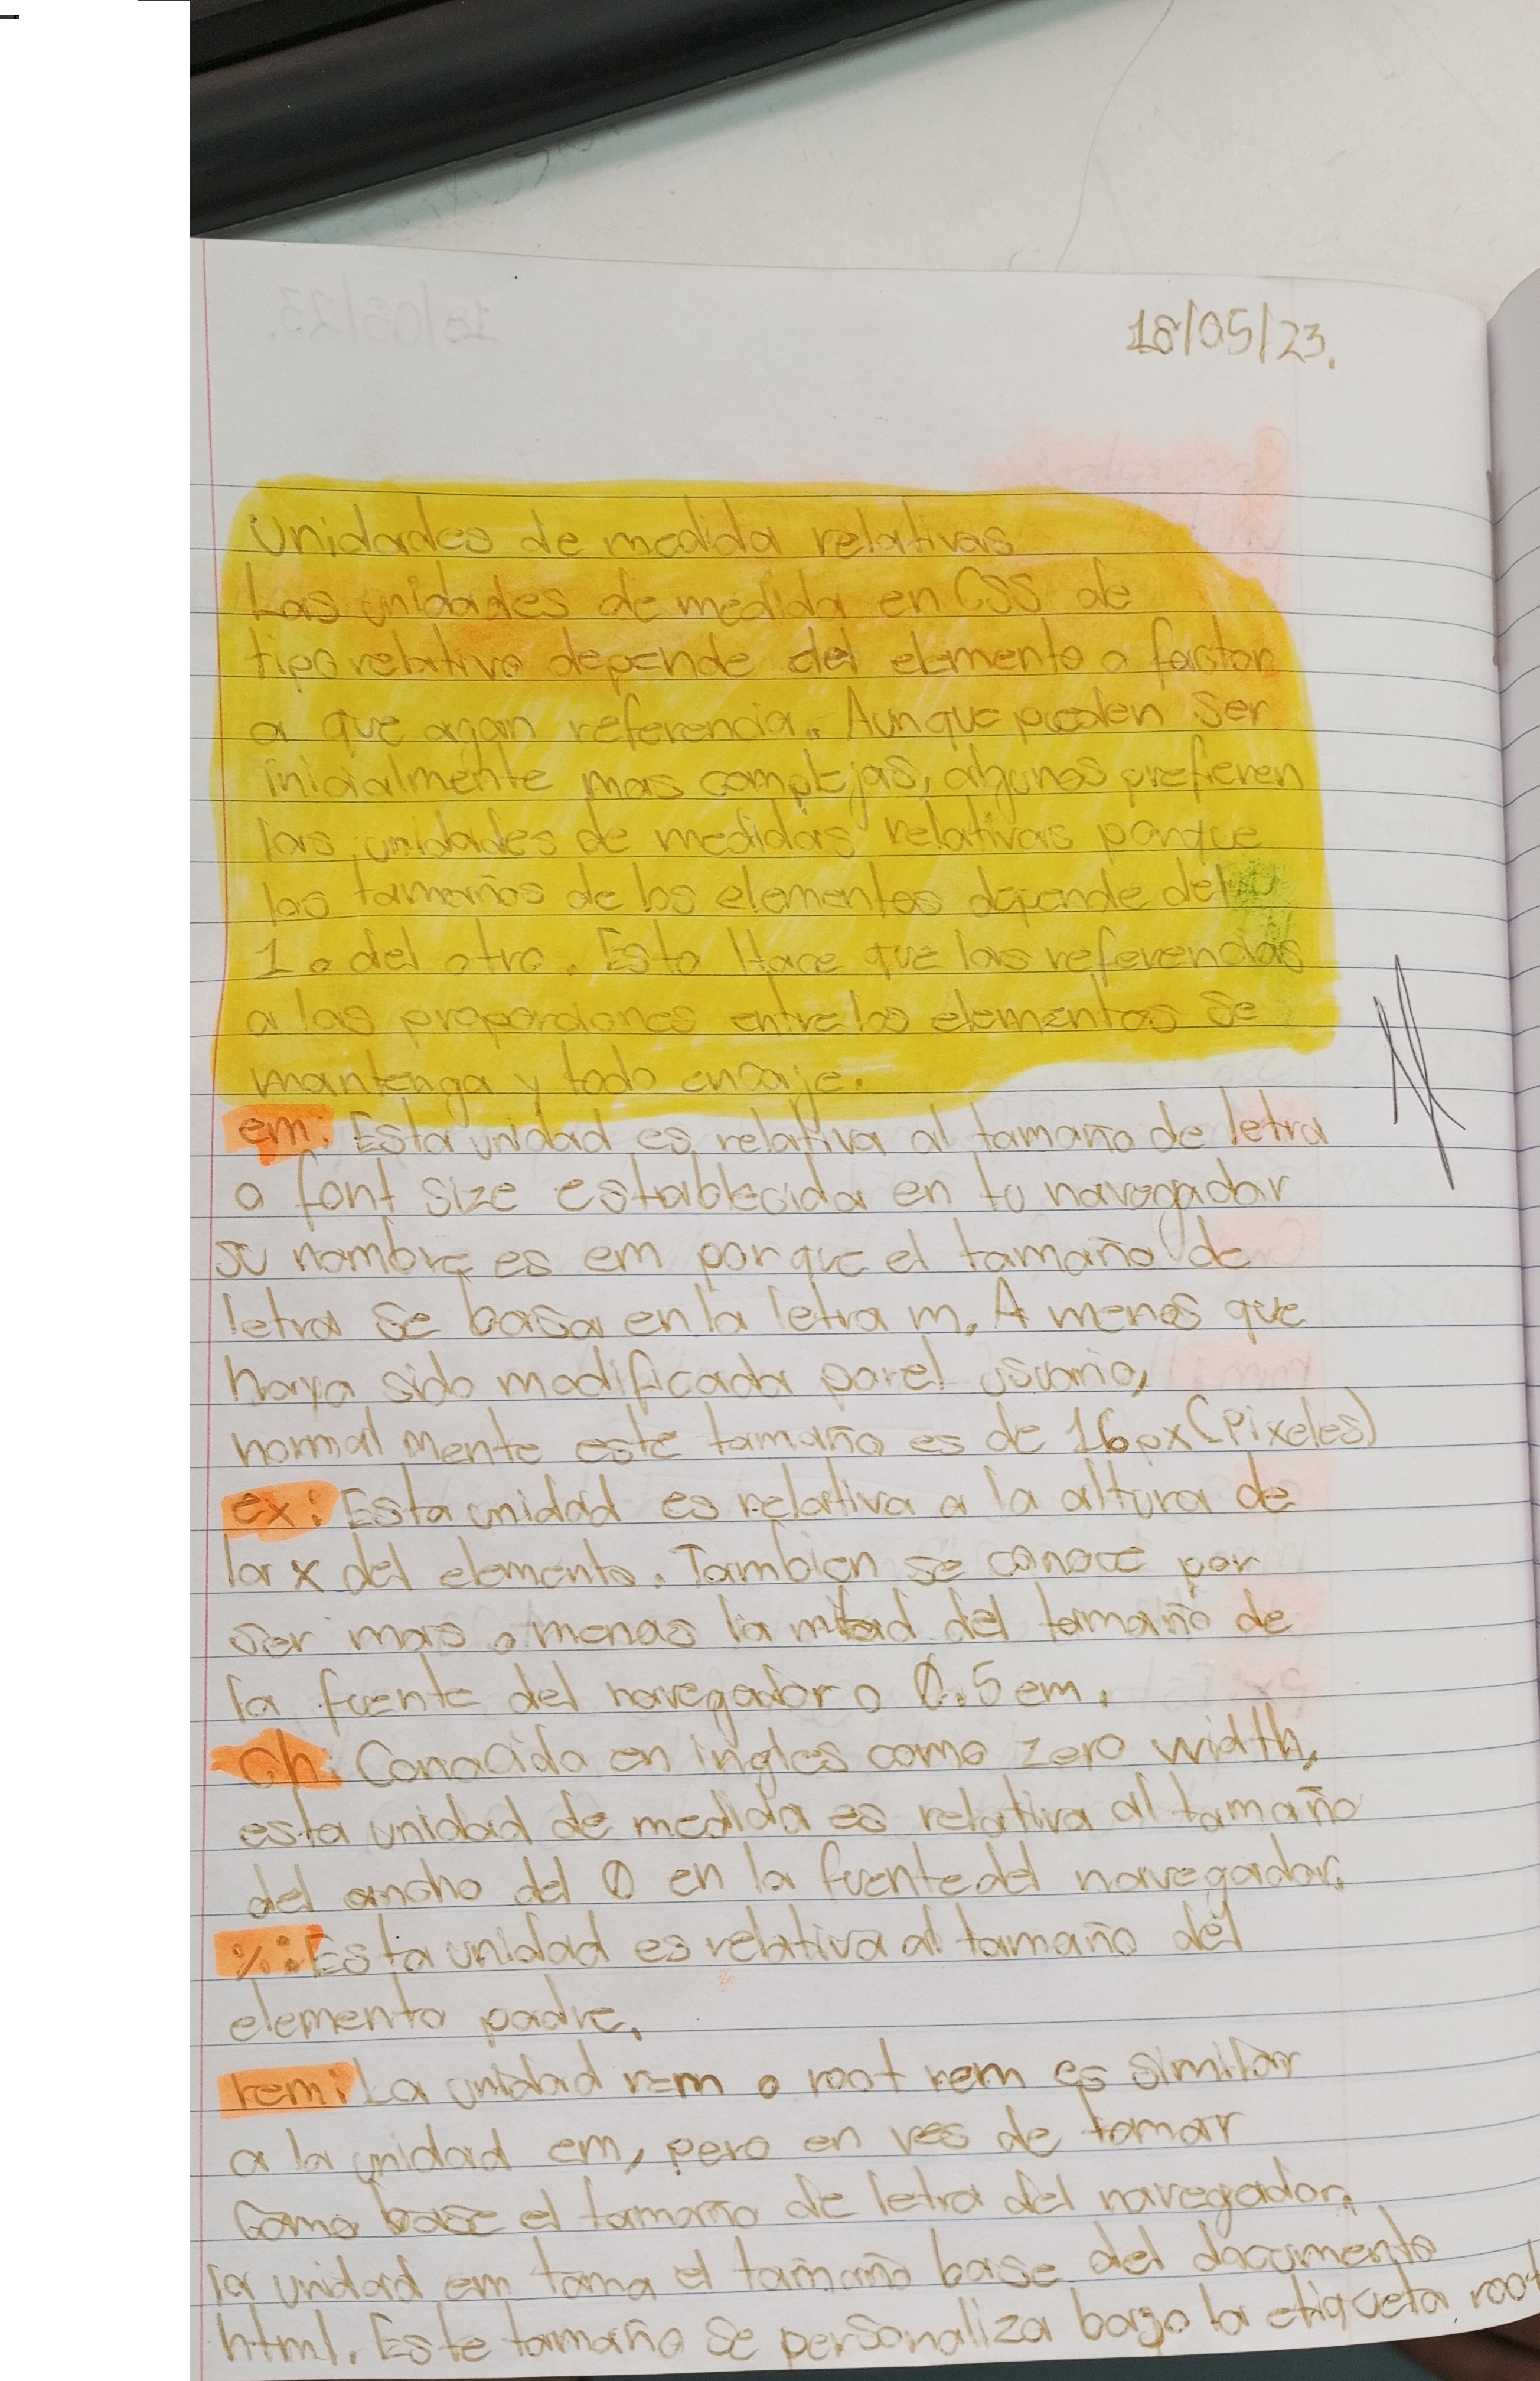 18/05/23.
Unidades de medida relativas
Las unidades de medida en CSS de
tipo relativo depende del elemento o factor
a que agan referencia. Aunque pueden ser
inicialmente mas complejas, algunos prefieren
las unidades de medidas relativas porque
los tamaños de los elementos depende del
1 o del otro. Esto Hace que las referencias
a las proporciones entre los elementos se
mantenga y todo encaje.
em: Esta unidad es relativa al tamaño de letra
o font size establecida en tu navegador
su nombre es em porque el tamaño de
letra se basa en la letra m. A menos que
haya sido modificada por el usuario,
normal mente este tamaño es de 16px (Pixeles)
ex: Esta unidad es relativa a la altura de
la x del elemento. Tambien se conoce por
ser mas o menos la mitad del tamaño de
la fuente del navegador o 0.5 em.
Ch: Conocida en ingles como zero width,
esta unidad de medida es relativa al tamaño
del ancho del 0 en la fuente del navegador.
%: Esta unidad es relativa al tamaño del
elemento padre.
rem: La unidad rem o root rem es similar
a la unidad em, pero en ves de tomar
Como base el tamaño de letra del navegador,
la unidad em toma el tamaño base del documento
html. Este tamaño se personaliza bajo la etiqueta root